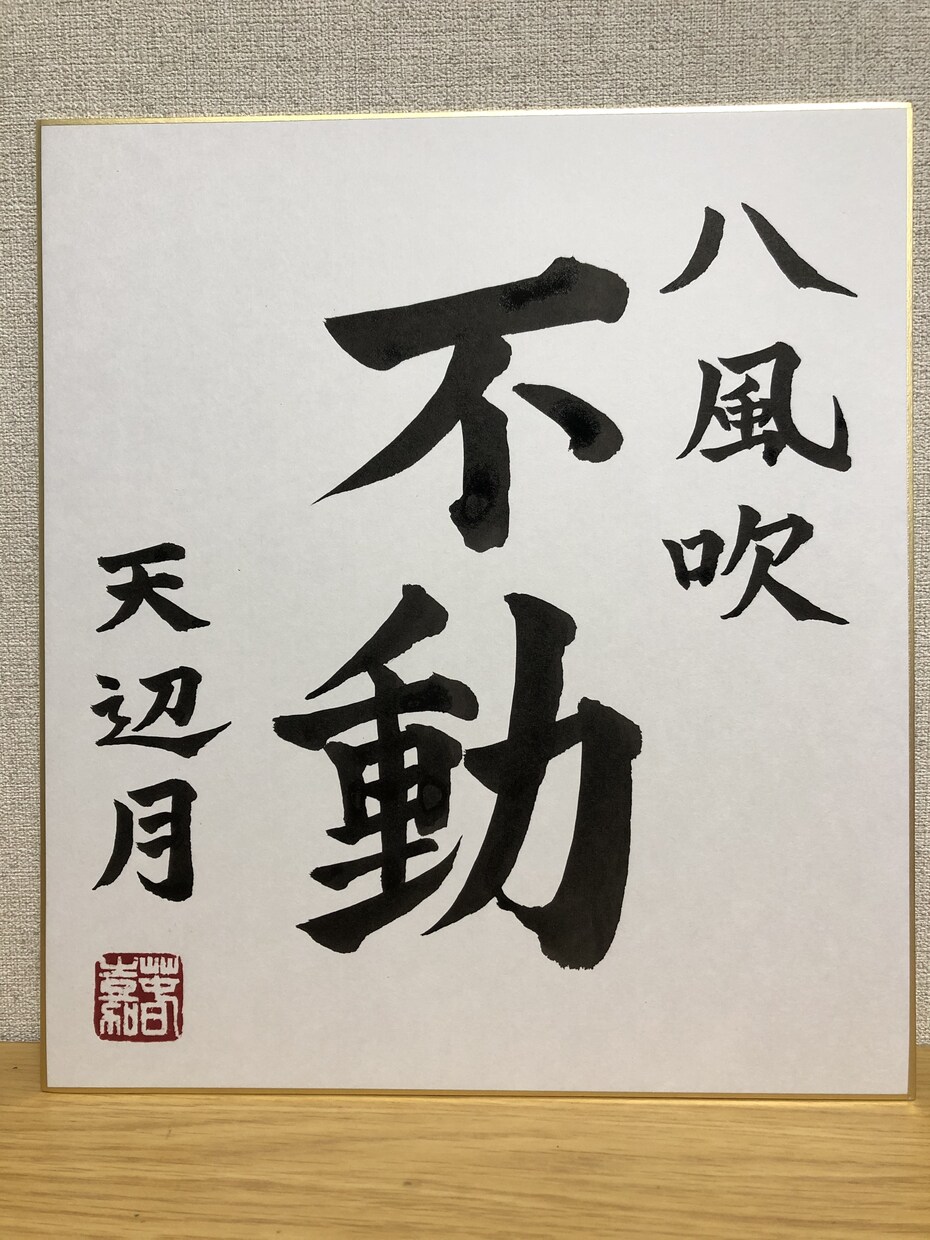 八風吹
不動
天辺月